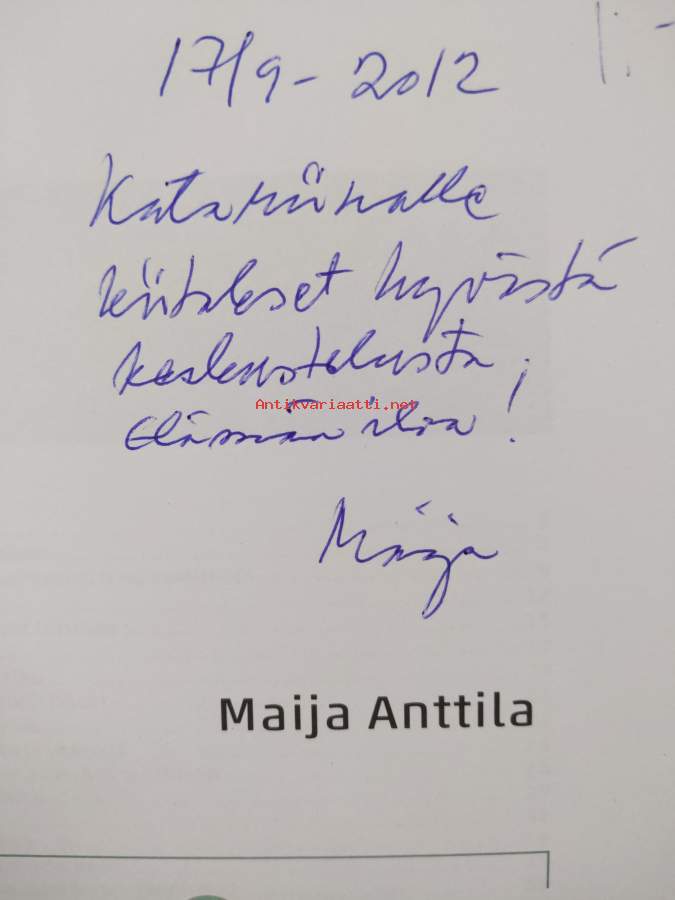 17/9 - 2012
Katariinalle
kiitokset hyvästä
keskustelusta.
Antikvariaatti.net
Elämän iloa!
Maija
Maija Anttila